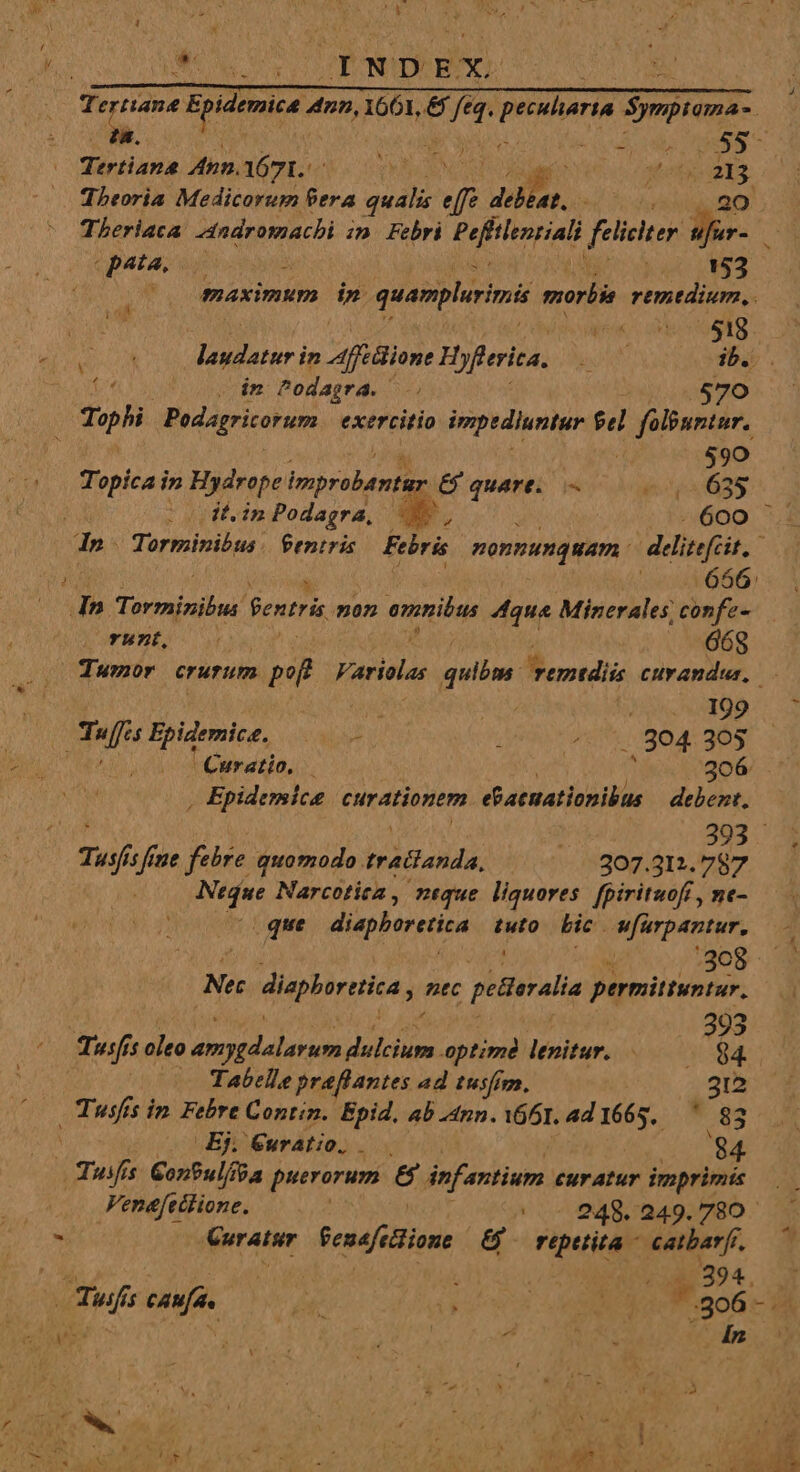 INDEX.
Tertianæ Epidemicæ Ann. 1661, & ſeq. peculiaria Symptoma-
ta. 55
Tertianæ Ann. 1671. 213
Theoria Medicorum vera qualis eſſe debeat. 20
Theriaca Andromachi in Febri Peſtilentiali feliciter uſur-
pata, 153
maximum in quamplurimis morbis remedium,
518
laudatur in Affectione Hyſterica, ib.
in Podagra. 570
Tophi Podagricorum exercitio impediuntur vel ſolvuntur.
590
Topica in Hydrope improbantur & quare. 635
it. in Podagra, 600
In Torminibus ventris Febris nonnunquam deliteſcit.
656
In Torminibus ventris non omnibus Aquæ Minerales confe-
runt, 668
Tumor crurum poſt Variolas quibus remediis curandus.
199
Tuſſes Epidemicæ. 304 305
Curatio, 306
Epidemicæ curationem evacuationibus debent,
393
Tusſis ſine febre quomodo tractanda, 307. 312. 787
Neque Narcotica, neque liquores ſpirituoſi, ne-
que diaphoretica tuto hic uſurpantur,
308
Nec diaphoretica, nec pectoralia permittuntur,
393
Tusſis oleo amygdalarum dulcium optimè lenitur. 84
Tabellæ præſtantes ad tusſim. 312
Tusſis in Febre Contin. Epid. ab Ann. 1661. ad 1665. 83
Ej. Curatio. 84
Tusſis Convulſiva puerorum & infantium curatur imprimis
Venæſectione. 248. 249. 780
Curatur venæſectione & repetita catharſi.
394.
Tusſis cauſa. 306
In